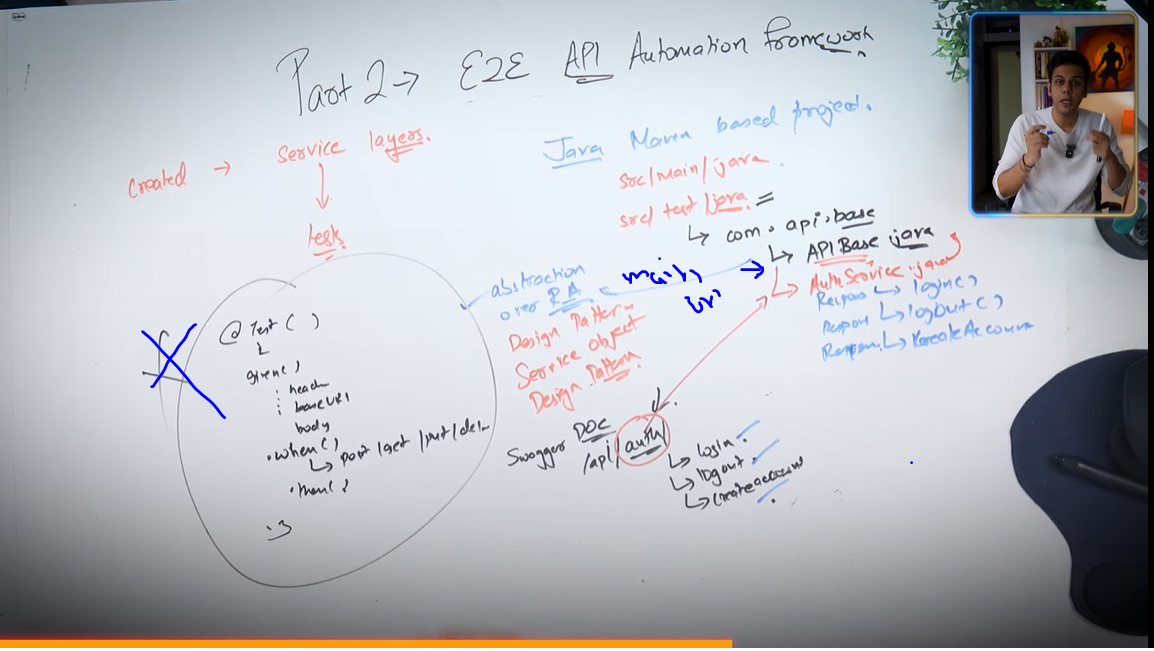 Part 2 → E2E API Automation Framework
Created → Service layers.
↓
tests
Java Maven based project.
src/main/java
src/test/java =
↳ com.api.base
↳ API Base java
↳ AuthService.java
↳ login()
↳ logout()
abstraction
over RA
Design Pattern
Service Object
Design Pattern
@Test( )
given()
: header
: baseURI
body
.when()
↳ post/get/put/del
.then()
Swagger DOC
/api/auth/
↳ login.
↳ logout.
↳ createaccount